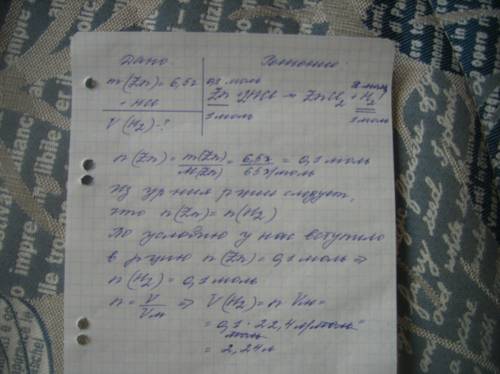 Дано
Решение
m(Zn) = 6,5г
+ HCl
V(H₂) - ?
0,1 моль
x моль
Zn + 2HCl = ZnCl₂ + H₂↑
1 моль
1 моль
n(Zn) = m(Zn)/M(Zn) = 6,5г/65г/моль = 0,1 моль
Из ур-ния р-ции следует,
что n(Zn) = n(H₂)
По условию у нас вступило
в р-цию n(Zn) = 0,1 моль ⇒
n(H₂) = 0,1 моль
n = V/Vм ⇒ V(H₂) = n · Vм =
= 0,1 · 22,4 л/моль =
моль
= 2,24л